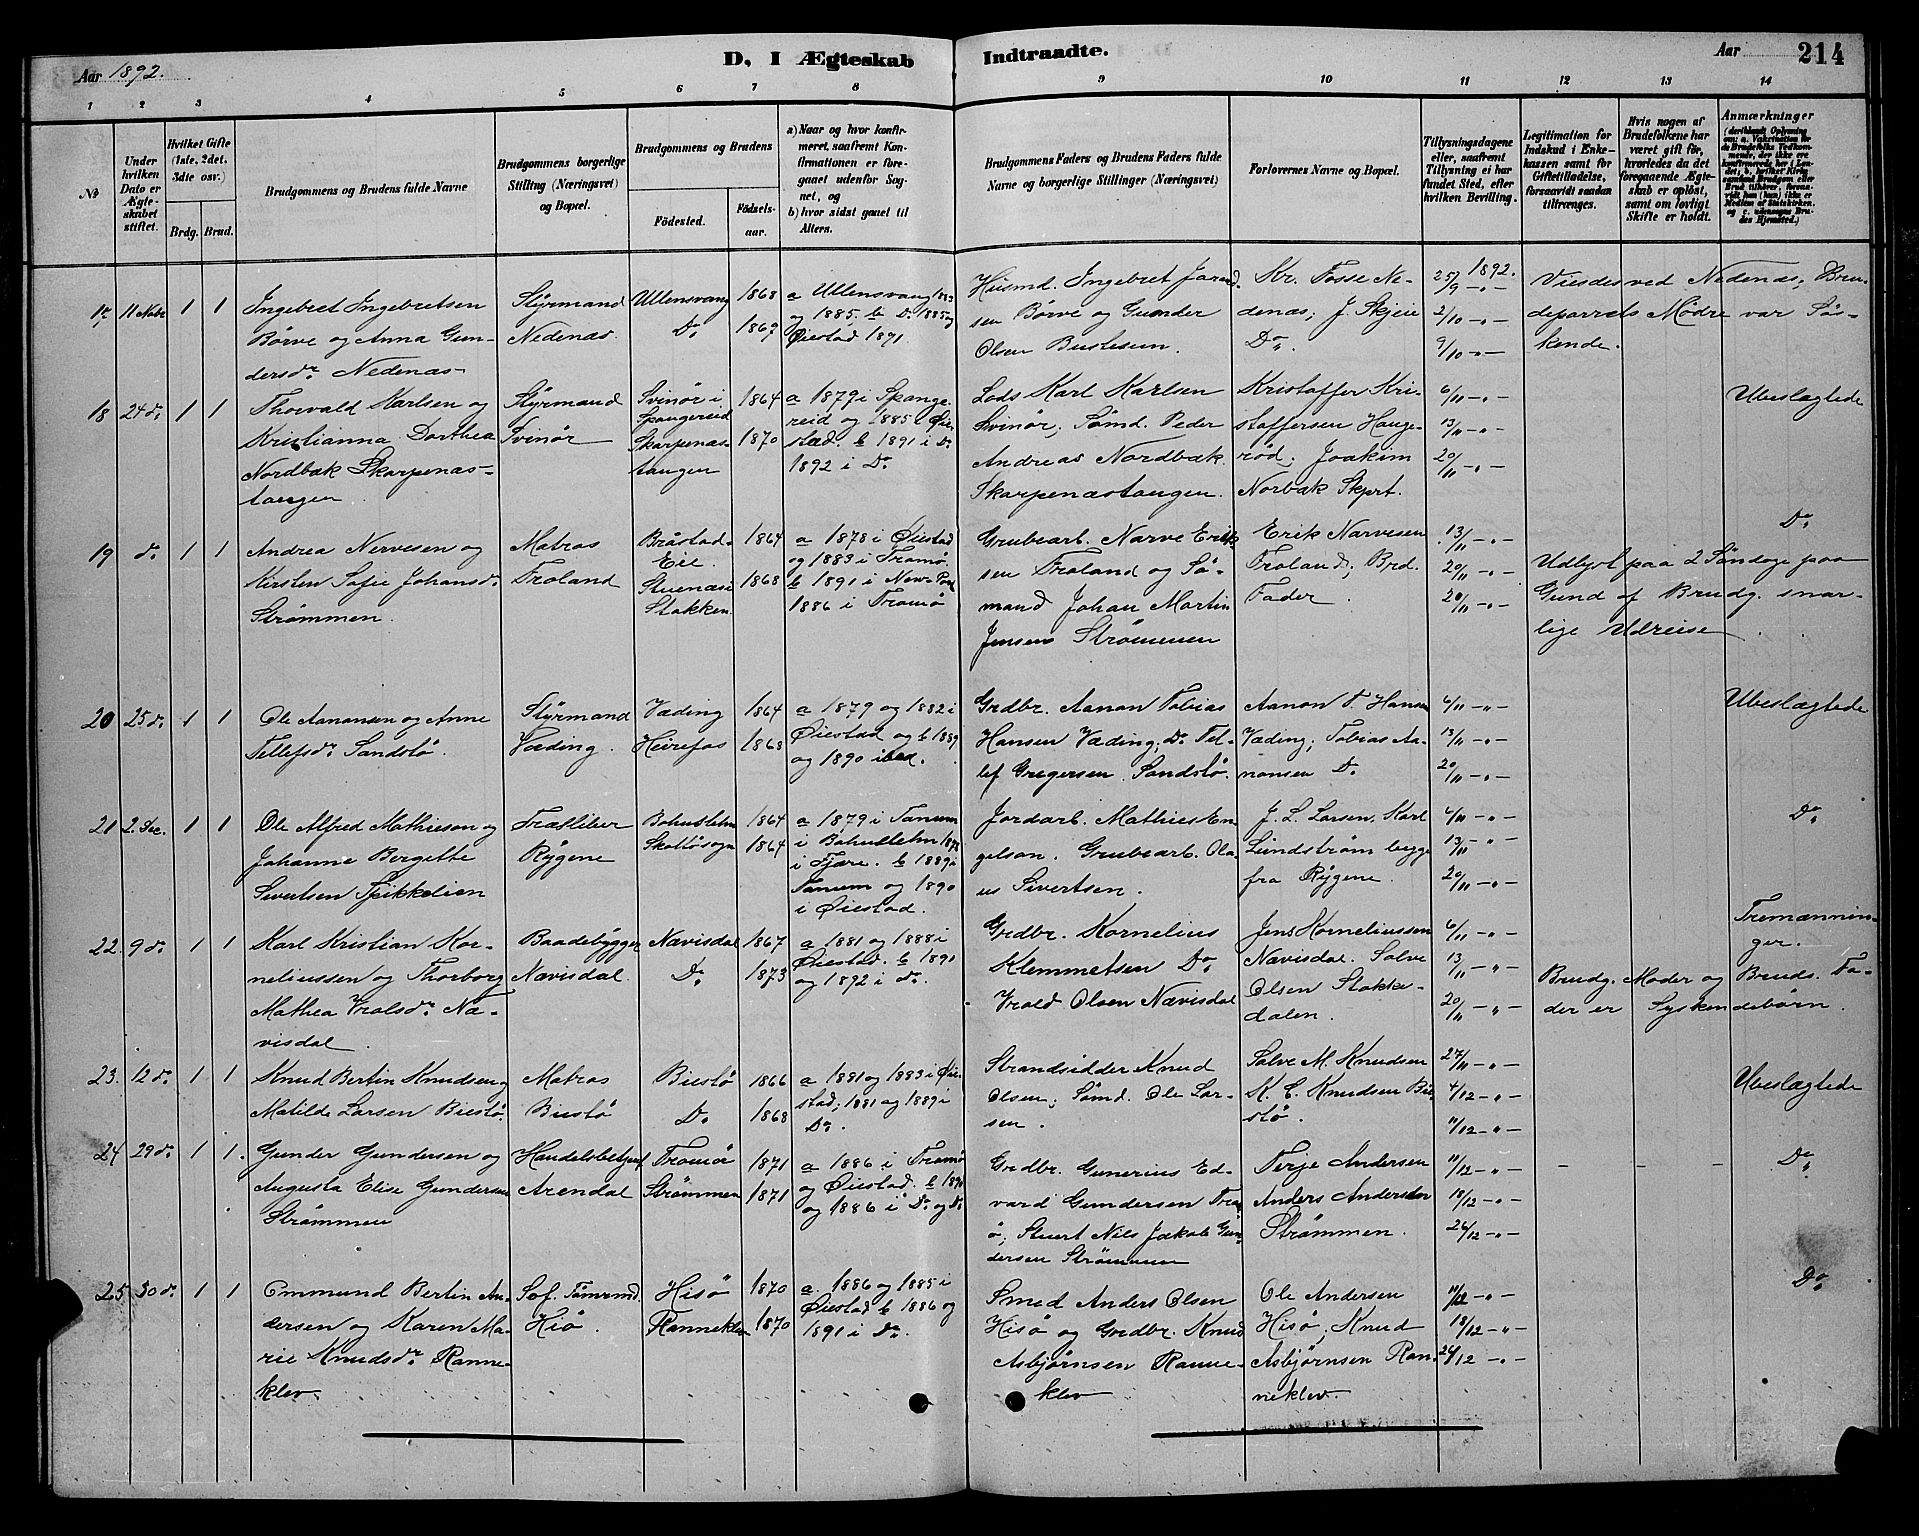 Aar 1892.
D, I Ægteskab Indtraadte.
Aar
214
1 2 3 4 5 6 7 8 9 10 11 12 13 14
№
Under hvilken Dato er Ægteskabet stiftet.
Hvilket Gifte (1ste, 2det, 3die osv.)
Brdg. Brud.
Brudgommens og Brudens fulde Navne
Brudgommens borgerlige Stilling (Næringsvei) og Bopæl.
Brudgommens og Brudens
Fødested.
Fødselsaar.
a) Naar og hvor konfirmeret, saafremt Konfirmationen er foregaaet udenfor Sognet, og
b) hvor sidst gaaet til Alters.
Brudgommens Faders og Brudens Faders fulde Navne og borgerlige Stillinger (Næringsvei)
Forlovernes Navne og Bopæl.
Tillysningsdagene eller, saafremt Tillysning ei har fundet Sted, efter hvilken Bevilling.
Legitimation for Indskud i Enkekassen samt for Giftetilladelse, forsaavidt saadan tiltrænges.
Hvis nogen af Brudefolkene har været gift før, hvorledes da det foregaaende Ægteskab er opløst, samt om lovligt Skifte er holdt.
Anmærkninger
17 11 Nobr 1 1
Ingebret Ingebretsen
Børve og Anna Gun-
dersdr. Nedenas
Styrmand
Nedenas
Ullensvang 1868
Do. 1869
a Ullensvang 1883
og 1885, b Do. 1885 og
Øiestad 1891
Husmd. Ingebret Jorand
sen Børve og Gunder
Olsen Bustesun.
Kr. Fosse Ne-
denas; J. Skjeie
Do.
1892.
25/9 -"-
2/10 -"-
9/10 -"-
Viesdes ved Nedenas; Bru-
deparrets Mødre var Søs-
kende.
18 24 do. 1 1
Thorvald Karlsen og
Kristianna Dorthea
Nordbak Skarpenas-
tangen
Styrmand
Svinør
Svinør i
Spangereid
Skarpenas-
tangen
1864
1870
a 1879 i Spange-
reid og 1885 i Øie-
stad. b 1891 i Do.
1892 i Do.
Lods Karl Karlsen
Svinør; Sømd. Peder
Andreas Nordbak
Skarpenastangen.
Kristoffer Kri-
stoffersen Hauge-
rød; Joakim
Norbak Skprt.
6/11 -"-
13/11 -"-
20/11 -"-
Ubeslægtede
19 do. 1 1
Andrea Nervesen og
Kirsten Sofie Johansdr.
Strømmen.
Matros
Froland
Bråstad-
Eie
Stuenæs i
Stokken
1864
1868
a 1878 i Øiestad
og 1883 i Tromø
b 1891 i New-Port
1886 i Tromø
Grubearb. Narve Erik-
sen Froland og Sø-
mand Johan Martin
Jensen Strømmen
Erik Narvesen
Froland; Brd.
Fader.
13/11 -"-
20/11 -"-
20/11 -"-
Do.
Udlyst paa 2 Søndage paa
Gund af Brudg. snar-
lige Udreise
20 25 do. 1 1
Ole Aanonsen og Anne
Tellefsdr. Sandstø
Styrmand
Væding.
Væding 1864
Heirefos 1868
a 1879 og 1882 i
Øiestad og b 1889
og 1890 ibed.
Grdbr. Aanon Tobias
Hansen Væding; Do. Tel-
lef Gregersen Sandstø.
Aanon T. Hansen
Væding; Tobias Aa-
nonsen Do.
6/11 -"-
13/11 -"-
20/11 -"-
Ubeslægtede
21 2. Dec. 1 1
Ole Alfred Mathieson og
Johanne Bergette
Sivertsen Tjikkelien
Træsliber
Rygene
Bohuslehn 1864
Skottøsogn 1864
a 1879 i Tanum
i Bohuslehn 1878
i Fjære. b 1889 i
Tanum og 1890
i Øiestad.
Jordarb. Mathies En
gelson. Grubearb. Ola-
us Sivertsen.
J. L. Larsen, Karl
Lundstrøm begge
fra Rygene.
6/11 -"-
13/11 -"-
20/11 -"-
Do.
22. 9 do. 1 1
Karl Kristian Kor-
neliussen og Thorborg
Mathea Vralsdr. Næ-
visdal
Baadebygger
Nævisdal
Nævisdal 1867
Do. 1873
a 1881 og 1888 i
Øiestad. b 1890
og 1892 i do.
Grdbr. Kornelius
Klemmetsen Do.
Vrold Olsen Nævisdal
Jens Korneliussen
Nævisdal. Salve
Olsen Stokke-
dalen.
6/11 -"-
13/11 -"-
20/11 -"-
Tremænnin-
ger.
Brudg. Moder og Bruds. Fa-
der er Syskendebørn.
23. 12 do. 1 1
Knud Bertin Knudsen og
Matilde Larsen Biestø.
Matros
Biestø
Biestø 1866
Do. 1868
a 1881 og 1883 i Øie-
stad; 1881 og 1889 i
Do.
Strandsidder Knud
Olsen; Sømd. Ole Lar-
sen.
Salve M. Knudsen
K. C. Knudsen Bie-
stø.
27/11 -"-
4/12 -"-
11/12 -"-
Ubeslægtede
24 29 do. 1 1.
Gunder Gundersen og
Augusta Elise Gundersen
Strømmen
Handelsbetjent
Arendal
Tromø 1871
Strømmen 1871
a 1886 i Tromø
og Øiestad. b 1890
og 1886 i Do. og Do.
Grdbr. Gunerius Ed-
vard Gundersen Trom-
ø; Stuert Nils Jakob Gun-
dersen Strømmen
Terje Andersen
Anders Andersen
Strømmen.
11/12 -"-
18/12 -"-
26/12 -"-
Do.
25 30 do. 1 1
Emmund Bertin An-
dersen og Karen Ma-
rie Knudsdr. Ranne-
klev.
Sof. Tømrmd.
Hisø.
Hisø 1870
Ranneklev 1870
a. 1886 og 1885 i
Øiestad b 1886 og
1891 i Do.
Smed Anders Olsen
Hisø og Grdbr. Knud
Asbjørnsen Ranne-
klev
Ole Andersen
Hisø; Knud
Asbjørnsen Ran-
neklev.
11/12 -"-
18/12 -"-
26/12 -"-
Do.